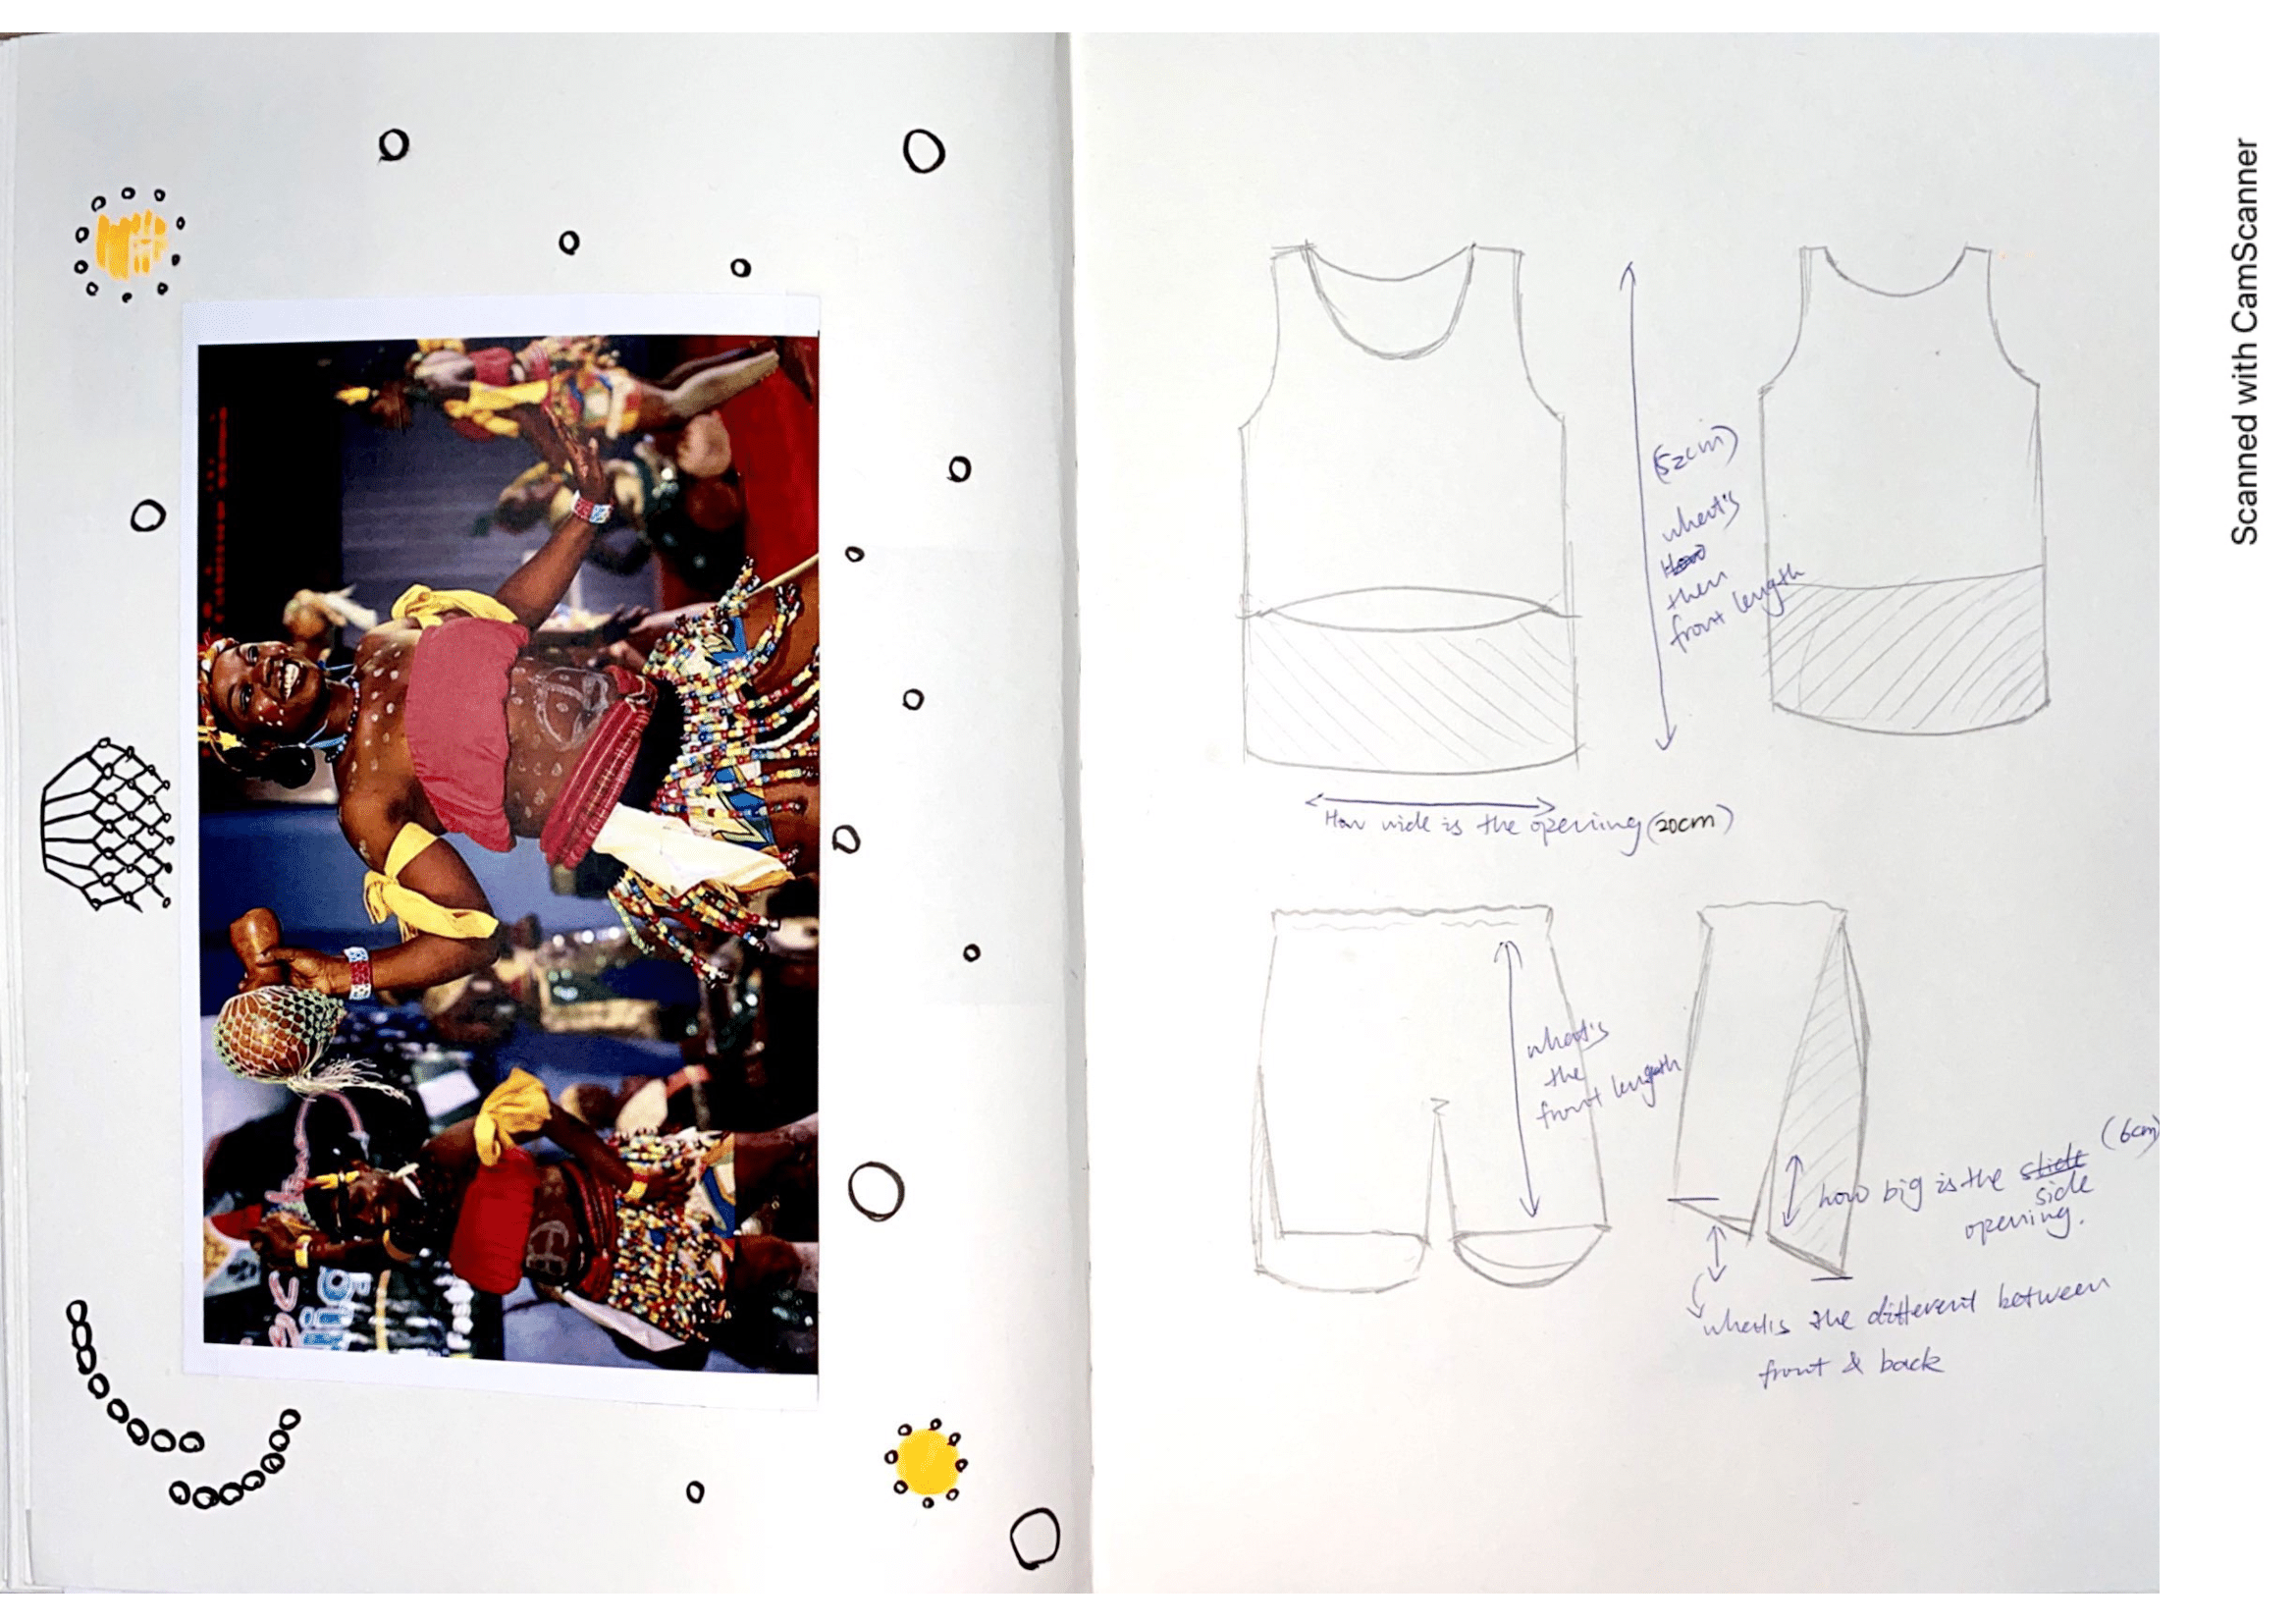 (52cm)
what's
then
front length
How wide is the opening (20cm)
what's
the
front length
(6cm)
how big is the slide
side
opening.
what's the different between
front & back
Scanned with CamScanner